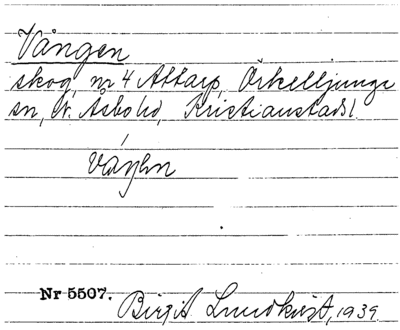 Vången
skog, nr 4 Attarp, Örkelljunga
sn, N. Åsbo hd, Kristianstads l.
Nr 5507.
Birgit Lundkvist, 1939.